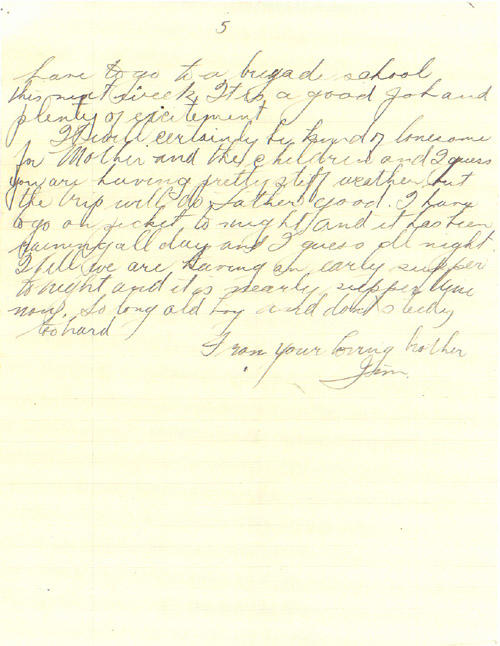 5
have to go to a brigade school
this next week. It is a good job and
plenty of excitement
It will certainly be kind of lonesome
for Mother and the children and I guess
you are having pretty stiff weather, but
the trip will do Father good. I have
to go on picket to night and it has been
raining all day and I guess all night.
Well we are having an early supper
to night and it is nearly supper time
now. So long old boy and dont study
to hard
From your loving brother
Jim.